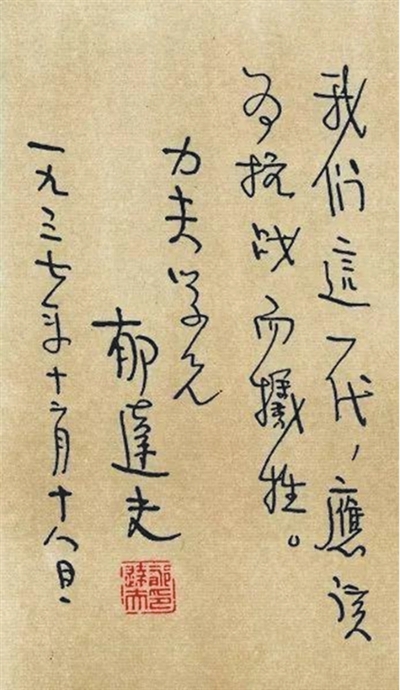 我们這一代，應该
为抗战而犧牲。
力夫学兄
郁達夫
一九三七年十二月十八日